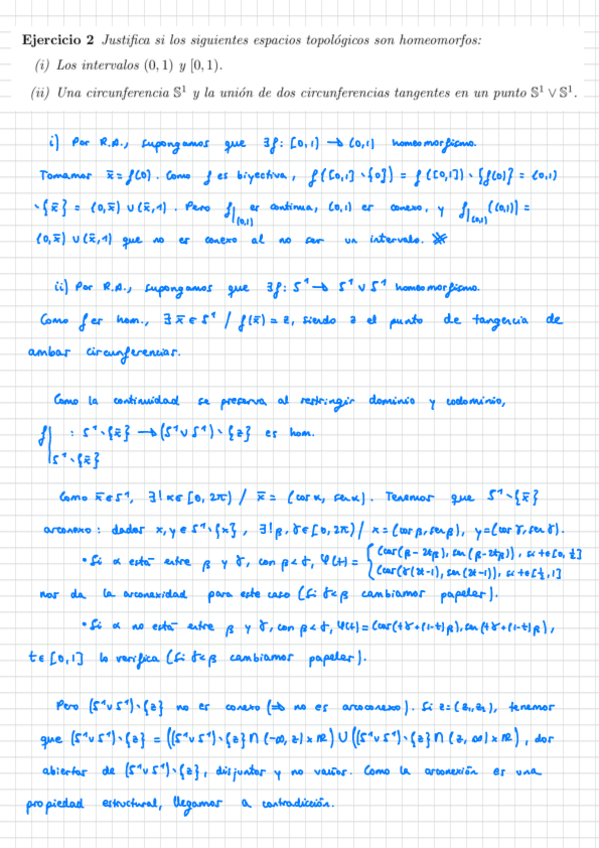 Ejercicio 2 Justifica si los siguientes espacios topológicos son homeomorfos:
(i) Los intervalos (0, 1) y [0, 1).
(ii) Una circunferencia 𝕊¹ y la unión de dos circunferencias tangentes en un punto 𝕊¹ ∨ 𝕊¹.
i) Por R.A., supongamos que ∃f: [0,1) → (0,1) homeomorfismo.
Tomamos x̄ = f(0). Como f es biyectiva, f([0,1) \ {0}) = f([0,1)) \ {f(0)} = (0,1)
\ {x̄} = (0,x̄) ∪ (x̄,1). Pero f|(0,1) es continua, (0,1) es conexo, y f|(0,1)((0,1)) =
(0,x̄) ∪ (x̄,1) que no es conexo al no ser un intervalo. ※
ii) Por R.A., supongamos que ∃f: S¹ → S¹ ∨ S¹ homeomorfismo.
Como f es hom., ∃ x̄ ∈ S¹ / f(x̄) = z, siendo z el punto de tangencia de
ambas circunferencias.
Como la continuidad se preserva al restringir dominio y codominio,
f|S¹\{x̄} : S¹\{x̄} → (S¹∨S¹)\{z} es hom.
Como x̄ ∈ S¹, ∃! α ∈ [0, 2π) / x̄ = (cos α, sen α). Tenemos que S¹\{x̄}
arconexo: dados x, y ∈ S¹\{x}, ∃! β, γ ∈ [0, 2π) / x = (cos β, sen β), y = (cos γ, sen γ).
• Si α está entre β y γ, con β < γ, φ(t) = { (cos(β - 2tβ), sen(β - 2tβ)), si t ∈ [0, ½]
(cos(γ(2t-1), sen(2t-1)), si t ∈ [½, 1]
nos da la arconexidad para este caso (si γ < β cambiamos papeles).
• Si α no está entre β y γ, con β < γ, φ(t) = (cos(tγ + (1-t)β), sen(tγ + (1-t)β),
t ∈ [0,1] lo verifica (si γ < β cambiamos papeles).
Pero (S¹∨S¹)\{z} no es conexo (⇒ no es arcoconexo). Si z = (z₁, z₂), tenemos
que (S¹∨S¹)\{z} = ((S¹∨S¹)\{z} ∩ (-∞, z) × ℝ) ∪ ((S¹∨S¹)\{z} ∩ (z, ∞) × ℝ), dos
abiertos de (S¹∨S¹)\{z}, disjuntos y no vacíos. Como la arconexión es una
propiedad estructural, llegamos a contradicción.